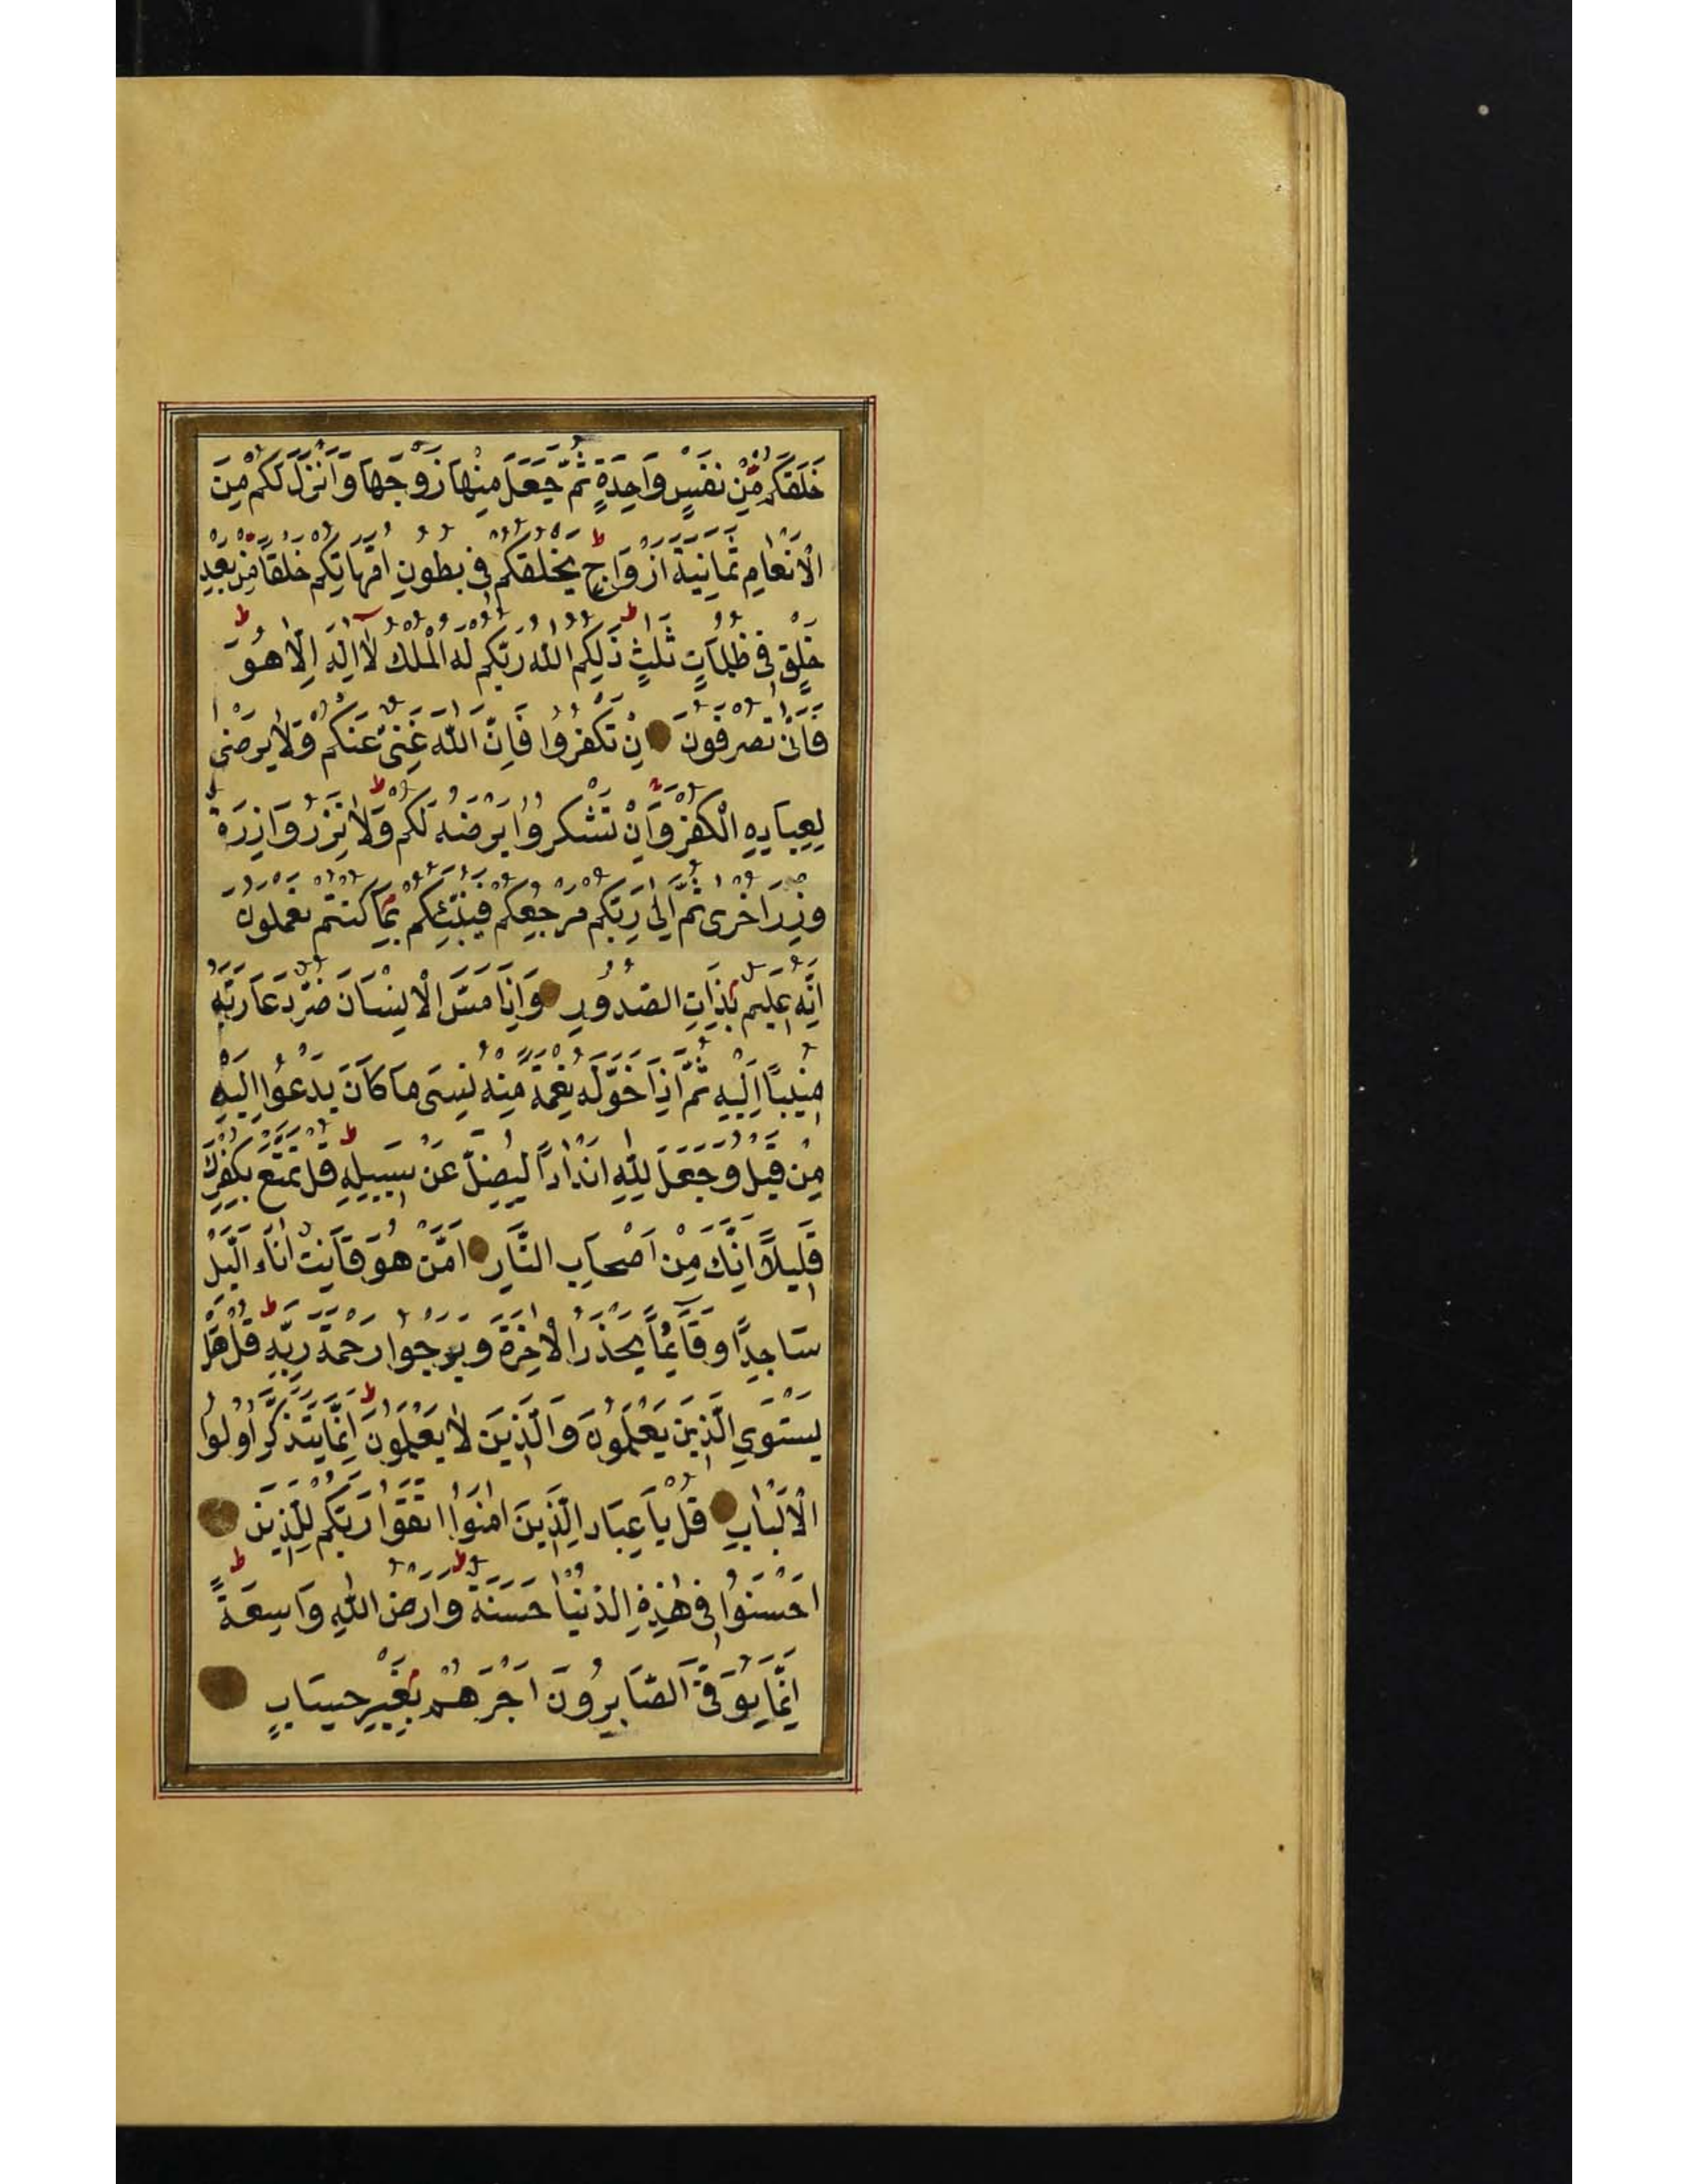 خَلَقَكُمْ مِنْ نَفْسٍ وَاحِدَةٍ ثُمَّ جَعَلَ مِنْهَا زَوْجَهَا وَاَنْزَلَ لَكُمْ مِنَ
الْاَنْعَامِ ثَمَانِيَةَ اَزْوَاجٍ ط يَخْلُقُكُمْ فِى بُطُونِ اُمَّهَاتِكُمْ خَلْقًا مِنْ بَعْدِ
خَلْقٍ فِى ظُلُمَاتٍ ثَلٰثٍ ط ذٰلِكُمُ اللّٰهُ رَبُّكُمْ لَهُ الْمُلْكُ لَا اِلٰهَ اِلَّا هُوَ ط
فَاَنّٰى تُصْرَفُونَ اِنْ تَكْفُرُوا فَاِنَّ اللّٰهَ غَنِىٌّ عَنْكُمْ وَلَا يَرْضٰى
لِعِبَادِهِ الْكُفْرَ وَاِنْ تَشْكُرُوا يَرْضَهُ لَكُمْ ط وَلَا تَزِرُ وَازِرَةٌ
وِزْرَ اُخْرٰى ثُمَّ اِلٰى رَبِّكُمْ مَرْجِعُكُمْ فَيُنَبِّئُكُمْ بِمَا كُنْتُمْ تَعْمَلُونَ
اِنَّهُ عَلِيمٌ بِذَاتِ الصُّدُورِ وَاِذَا مَسَّ الْاِنْسَانَ ضُرٌّ دَعَا رَبَّهُ
مُنِيبًا اِلَيْهِ ثُمَّ اِذَا خَوَّلَهُ نِعْمَةً مِنْهُ نَسِىَ مَا كَانَ يَدْعُوا اِلَيْهِ
مِنْ قَبْلُ وَجَعَلَ لِلّٰهِ اَنْدَادًا لِيُضِلَّ عَنْ سَبِيلِهِ ط قُلْ تَمَتَّعْ بِكُفْرِكَ
قَلِيلًا اِنَّكَ مِنْ اَصْحَابِ النَّارِ اَمَّنْ هُوَ قَانِتٌ اٰنَاءَ الَّيْلِ
سَاجِدًا وَقَائِمًا يَحْذَرُ الْاٰخِرَةَ وَيَرْجُوا رَحْمَةَ رَبِّهِ ط قُلْ هَلْ
يَسْتَوِى الَّذِينَ يَعْلَمُونَ وَالَّذِينَ لَا يَعْلَمُونَ ط اِنَّمَا يَتَذَكَّرُ اُولُوا
الْاَلْبَابِ قُلْ يَا عِبَادِ الَّذِينَ اٰمَنُوا اتَّقُوا رَبَّكُمْ لِلَّذِينَ
اَحْسَنُوا فِى هٰذِهِ الدُّنْيَا حَسَنَةٌ ط وَاَرْضُ اللّٰهِ وَاسِعَةٌ ط
اِنَّمَا يُوَفَّى الصَّابِرُونَ اَجْرَهُمْ بِغَيْرِ حِسَابٍ